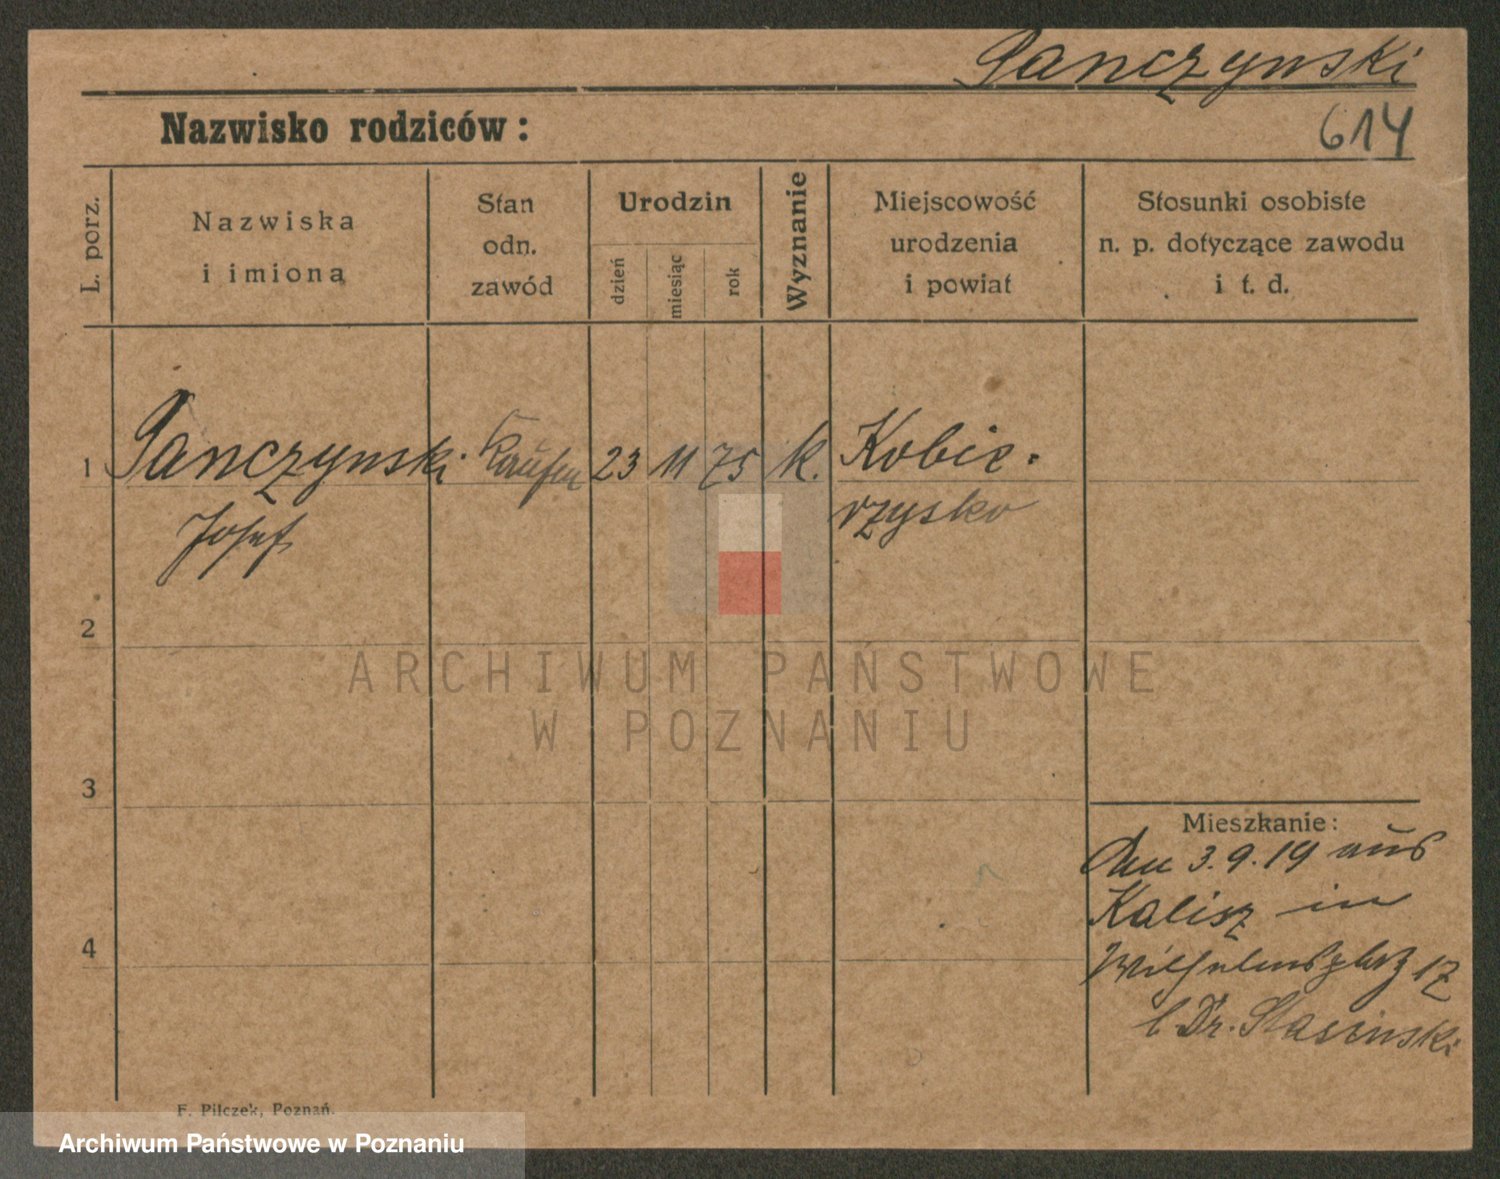 Panczynski
614
Nazwisko rodziców:
L. porz.
Nazwiska
i imiona
Stan
odn.
zawód
Urodzin
dzień
miesiąc
rok
Wyznanie
Miejscowość
urodzenia
i powiat
Stosunki osobiste
n. p. dotyczące zawodu
i t. d.
1 Panczynski 23 11 75 k. Kobie-
Josef rzysko
2
3
4
Mieszkanie:
Den 3.9.19 aus
Kalisz in
Wilhelmsplatz 17
b Dr. Stasinski
F. Pilczek, Poznań.
ARCHIWUM PAŃSTWOWE
W POZNANIU
Archiwum Państwowe w Poznaniu